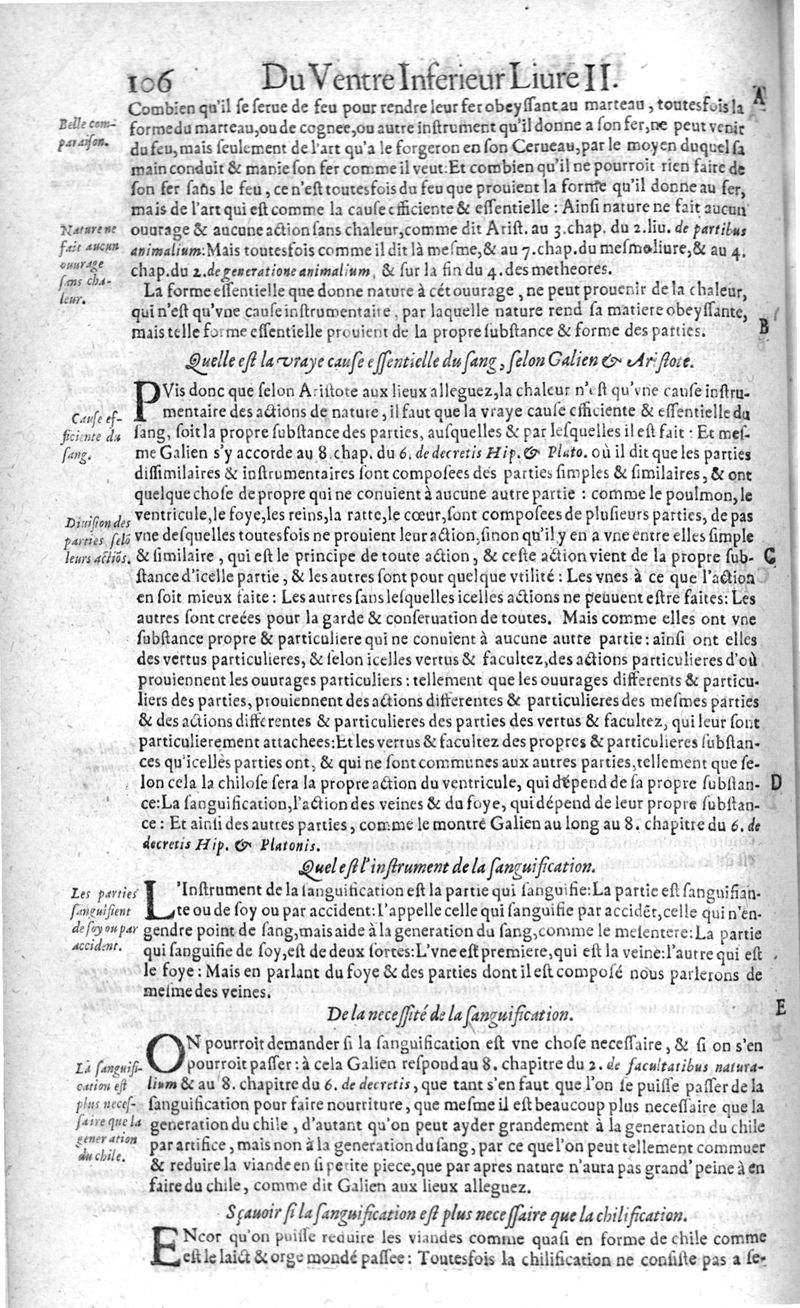 106 Du Ventre Inferieur Liure II.
Combien qu'il se serue de feu pour rendre leur fer obeyssant au marteau, toutesfois la A
Belle com- forme du marteau, ou de cognee, ou autre instrument qu'il donne a son fer, ne peut venir
paraison. du feu, mais seulement de l'art qu'a le forgeron en son Cerueau, par le moyen duquel sa
main conduit & manie son fer comme il veut: Et combien qu'il ne pourroit rien faire de
son fer sans le feu, ce n'est toutesfois du feu que prouient la forme qu'il donne au fer,
mais de l'art qui est comme la cause efficiente & essentielle: Ainsi nature ne fait aucun
Nature ne ouurage & aucune action sans chaleur, comme dit Arist. au 3. chap. du 2. liu. de partibus
fait aucun animalium: Mais toutesfois comme il dit là mesme, & au 7. chap. du mesme liure, & au 4.
ouurage chap. du 2. de generatione animalium, & sur la fin du 4. des metheores.
sans cha- La forme essentielle que donne nature à cét ouurage, ne peut prouenir de la chaleur,
leur. qui n'est qu'vne cause instrumentaire, par laquelle nature rend sa matiere obeyssante,
mais telle forme essentielle prouient de la propre substance & forme des parties. B
Quelle est la vraye cause essentielle du sang, selon Galien & Aristote.
PVis donc que selon Aristote aux lieux alleguez, la chaleur n'est qu'vne cause instru-
Cause ef- mentaire des actions de nature, il faut que la vraye cause efficiente & essentielle du
ficiente du sang, soit la propre substance des parties, ausquelles & par lesquelles il est fait: Et mes-
sang. me Galien s'y accorde au 8. chap. du 6. de decretis Hip. & Plato. où il dit que les parties
dissimilaires & instrumentaires sont composees des parties simples & similaires, & ont
quelque chose de propre qui ne conuient à aucune autre partie: comme le poulmon, le
Diuision des ventricule, le foye, les reins, la ratte, le cœur, sont composees de plusieurs parties, de pas
parties selõ vne desquelles toutesfois ne prouient leur action, sinon qu'il y en a vne entre elles simple
leurs actiõs. & similaire, qui est le principe de toute action, & ceste action vient de la propre sub- C
stance d'icelle partie, & les autres sont pour quelque vtilité: Les vnes à ce que l'action
en soit mieux faite: Les aurres sans lesquelles icelles actions ne peuuent estre faites: Les
autres sont creées pour la garde & conseruation de toutes. Mais comme elles ont vne
substance propre & particuliere qui ne conuient à aucune autre partie: ainsi ont elles
des vertus particulieres, & selon icelles vertus & facultez, des actions particulieres d'où
prouiennent les ouurages particuliers: tellement que les ouurages differents & particu-
liers des parties, prouiennent des actions differentes & particulieres des mesmes parties
& des actions differentes & particulieres des parties des vertus & facultez, qui leur sont
particulierement attachees: Et les vertus & facultez des propres & particulieres substan-
ces qu'icelles parties ont, & qui ne sont communes aux autres parties, tellement que se-
lon cela la chilose sera la propre action du ventricule, qui dépend de sa propre substan- D
ce: La sanguification, l'action des veines & du foye, qui dépend de leur propre substan-
ce: Et ainsi des autres parties, comme le montré Galien au long au 8. chapitre du 6. de
decretis Hip. & Platonis.
Quel est l'instrument de la sanguification.
Les parties L'Instrument de la sanguification est la partie qui sanguifie: La partie est sanguifian-
sanguifient te ou de soy ou par accident: l'appelle celle qui sanguifie par accidẽt, celle qui n'en-
de soy ou par gendre point de sang, mais aide à la generation du sang, comme le mesentere: La partie
accident. qui sanguifie de soy, est de deux sortes: L'vne est premiere, qui est la veine: l'autre qui est
le foye: Mais en parlant du foye & des parties dont il est composé nous parlerons de
mesme des veines.
De la necessité de la sanguification. E
ON pourroit demander si la sanguification est vne chose necessaire, & si on s'en
La sanguifi- pourroit passer: à cela Galien respond au 8. chapitre du 2. de facultatibus natura-
cation est lium & au 8. chapitre du 6. de decretis, que tant s'en faut que l'on se puisse passer de la
plus neces- sanguification pour faire nourriture, que mesme il est beaucoup plus necessaire que la
saire que la generation du chile, d'autant qu'on peut ayder grandement à la generation du chile
generation par artifice, mais non à la generation du sang, par ce que l'on peut tellement commuer
du chile. & reduire la viande en si petite piece, que par apres nature n'aura pas grand' peine à en
faire du chile, comme dit Galien aux lieux alleguez.
Sçauoir si la sanguification est plus necessaire que la chilification.
ENcor qu'on puisse reduire les viandes comme quasi en forme de chile comme
est le laict & orge mondé passee: Toutesfois la chilification ne consiste pas a se-